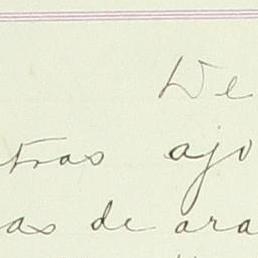 De
tras ajo
as de ara